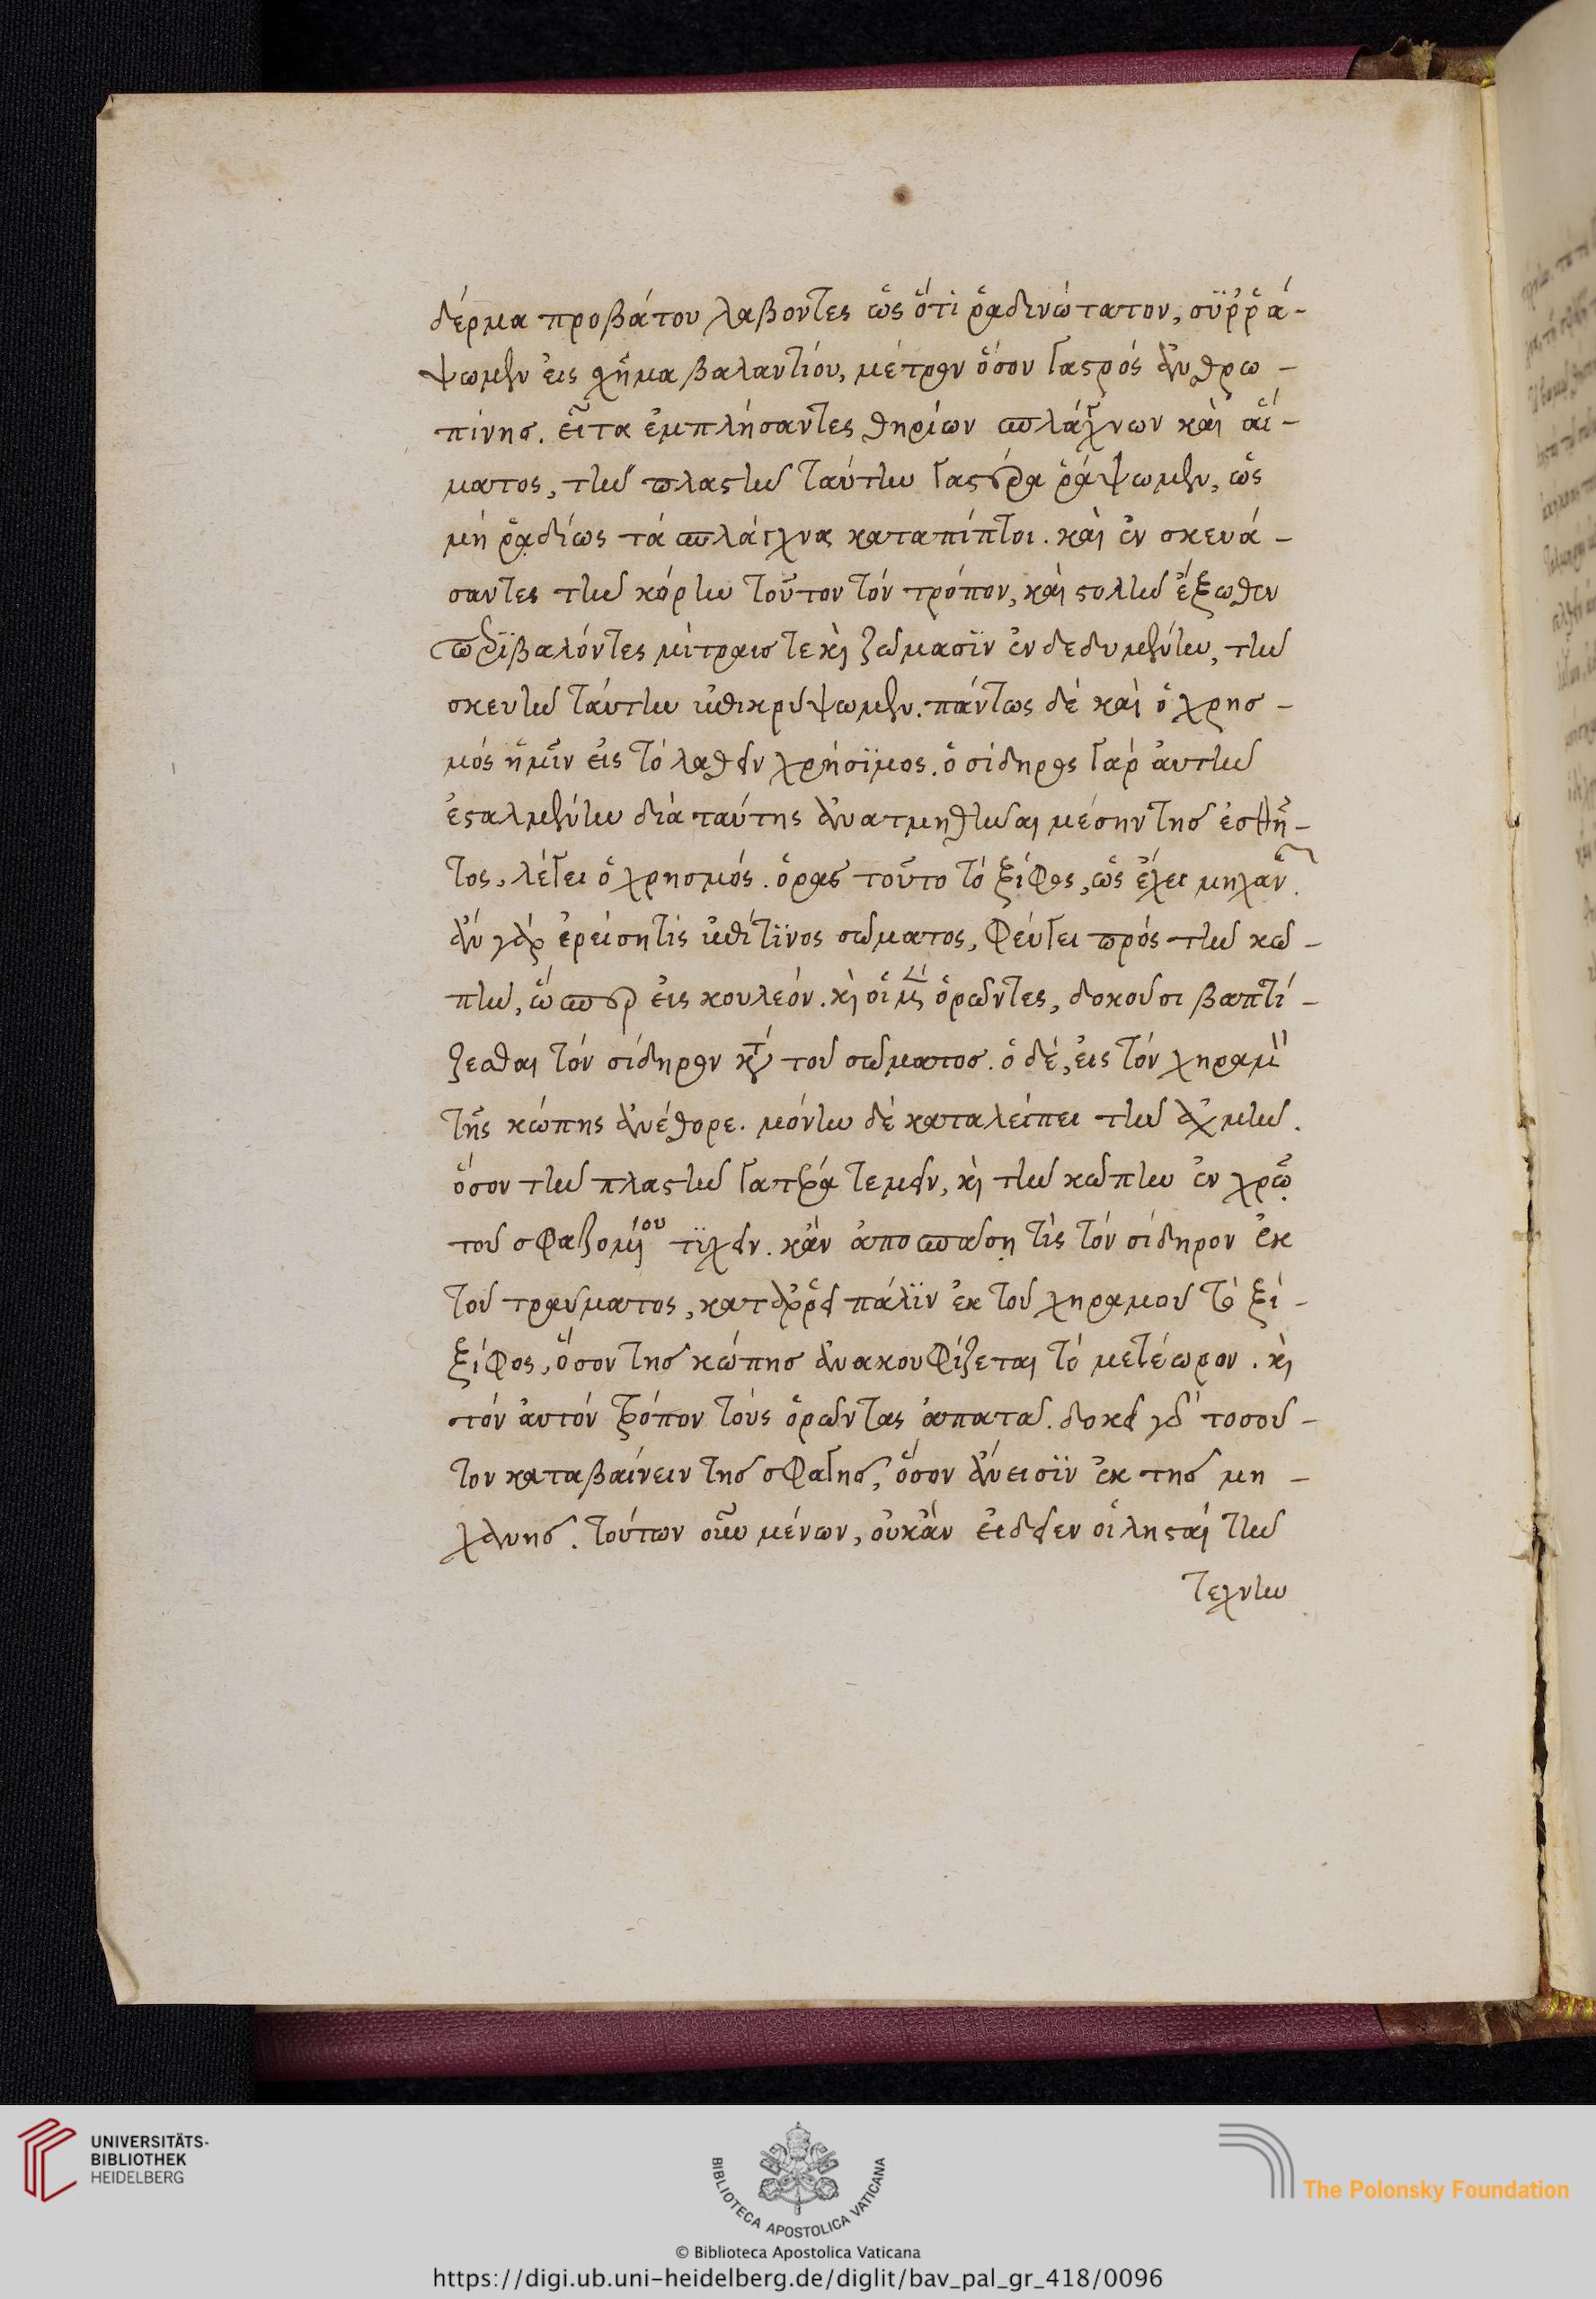 δέρμα προβάτου λαβοντες ὡς ὅτι ῥαδινώτατον, συῤῥά-
ψωμεν εἰς χῆμα βαλαντίου, μέτρον ὅσον γαστρός ἀνθρω-
πίνης. εἶτα ἐμπλήσαντες θηρίων σπλάγχνων καὶ αἵ-
ματος, τὴν πλαστὴν ταύτην γαστέρα ῥάψωμεν, ὡς
μή ῥαδίως τά σπλάγχνα καταπίπτοι. καὶ ἐν σκευά-
σαντες τὴν κόρην τοῦτον τόν τρόπον, καὶ στολὴν ἔξωθεν
περιβαλόντες μίτραις τε καὶ ζώμασιν ἐνδεδυμένην, τὴν
σκευὴν ταύτην ἐπικρύψωμεν. πάντως δὲ καὶ ὁ χρησ-
μός ἡμῖν εἰς τό λαθεῖν χρήσιμος. ὁ σίδηρος γάρ αὐτὴν
ἐσταλμένην διὰ ταύτης ἀνατμηθῆναι μέσην τῆς ἐσθῆ-
τος, λέγει ὁ χρησμός. ὁρᾷς τοῦτο τό ξίφος, ὡς ἔχει μηχανῆς.
ἄν γὰρ ἐρείσῃ τίς ἐπί τινος σώματος, φεύγει πρός τὴν κώ-
πην, ὥσπερ εἰς κουλεόν. καὶ οἱ μὲν ὁρῶντες, δοκοῦσι βαπτί-
ζεσθαι τόν σίδηρον κατά τοῦ σώματος. ὁ δέ, εἰς τόν χηραμὸν
τῆς κώπης ἀνέθορε. μόνην δέ καταλείπει τὴν αἰχμὴν.
ὅσον τὴν πλαστὴν γατέρα τεμεῖν, καὶ τὴν κώπην ἐν χρῷ
τοῦ σφαζομένου τυχεῖν. κἄν ἀποσπάσῃ τὶς τόν σίδηρον ἐκ
τοῦ τραύματος, καταῤῥεῖ πάλιν ἐκ τοῦ χηραμοῦ τὸ ξί-
ξίφος, ὅσον τῆς κώπης ἀνακουφίζεται τό μετέωρον. καὶ
τόν αὐτόν τρόπον τούς ὁρῶντας ἀπατᾷ. δοκεῖ γὰρ τοσοῦ-
τον καταβαίνειν τῆς σφαγῆς, ὅσον ἄνεισιν ἐκ τῆς μη-
χανῆς. τούτων οὖν μένων, οὐκἄν εἰδεῖεν οἱ λησταὶ τὴν
τεχνην
UNIVERSITÄTS-
BIBLIOTHEK
HEIDELBERG
BIBLIOTECA APOSTOLICA VATICANA
The Polonsky Foundation
© Biblioteca Apostolica Vaticana
https://digi.ub.uni-heidelberg.de/diglit/bav_pal_gr_418/0096